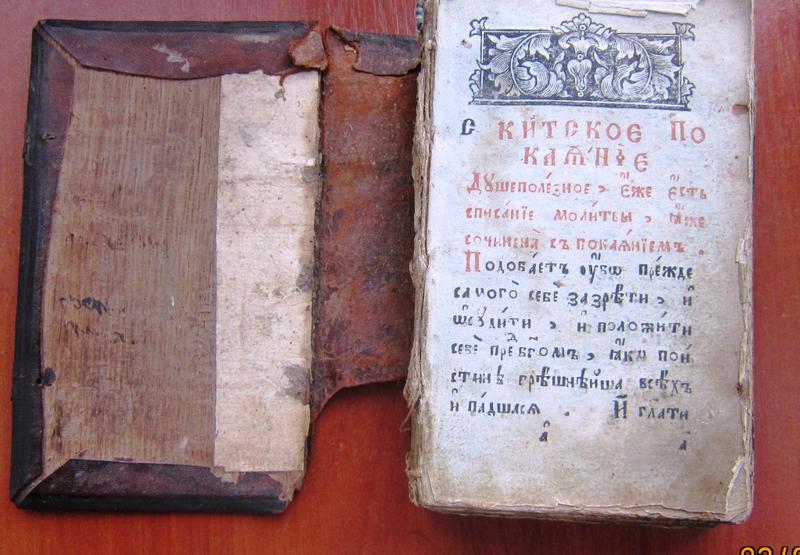 СКИ́ТСКОЕ ПО
КАѦ́НЇЕ
Душеполе́зное, є҆́же є҆́сть
списа́нїе моли́твы, ꙗ҆́же
сочинена̀ съ покаѧ́нїемъ.
Подоба́етъ ᲂу҆́бѡ пре́жде
самого̀ себѐ зазрѣ́ти, и҆
ѡ҆сꙋди́ти, и҆ положи́ти
себѐ пред̾ бг҃омъ, ꙗ҆́кѡ пои́
стинѣ грѣ́шнѣйша всѣ́хъ
и҆ па́дшасѧ. И҆ гл҃ати
а҃
а